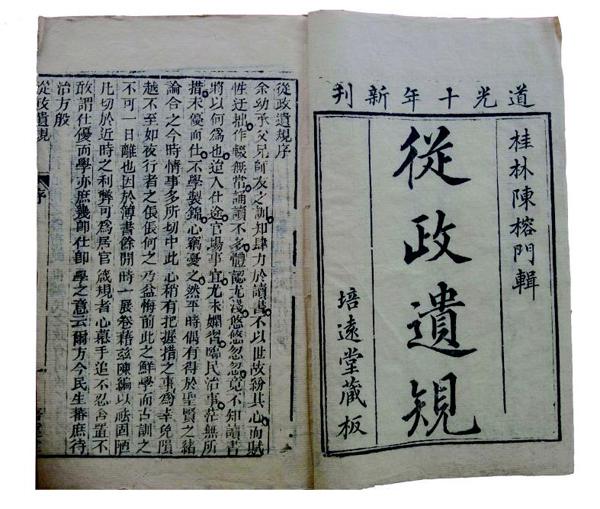 道光十年新刊
桂林陳榕門輯
從政遺規
培遠堂藏板
從政遺規序
余幼承父兄師友之訓知肆力於讀書不以世故紛其心而賦
性迂拙作輟無常誦讀不多體認尤淺悠悠忽忽竟不知讀書
將以何爲也迨入仕途官場事宜尤未嫻習臨民治事茫無所
措未優而仕不學製錦心竊憂之然平時偶有得於聖賢之緒
論合之今時情事多所切中此心稍有把握措之事爲幸免隕
越不至如夜行者之倀倀何之乃益悔前此之鮮學而古訓之
不可一日離也因於簿書餘閒時一展卷藉茲陳編以祛固陋
凡切於近時之利弊可爲居官箴規者心慕手追不忍舍置不
敢謂仕優而學亦庶幾卽仕卽學之意云爾方今民生蕃庶待
治方殷
從政遺規
序